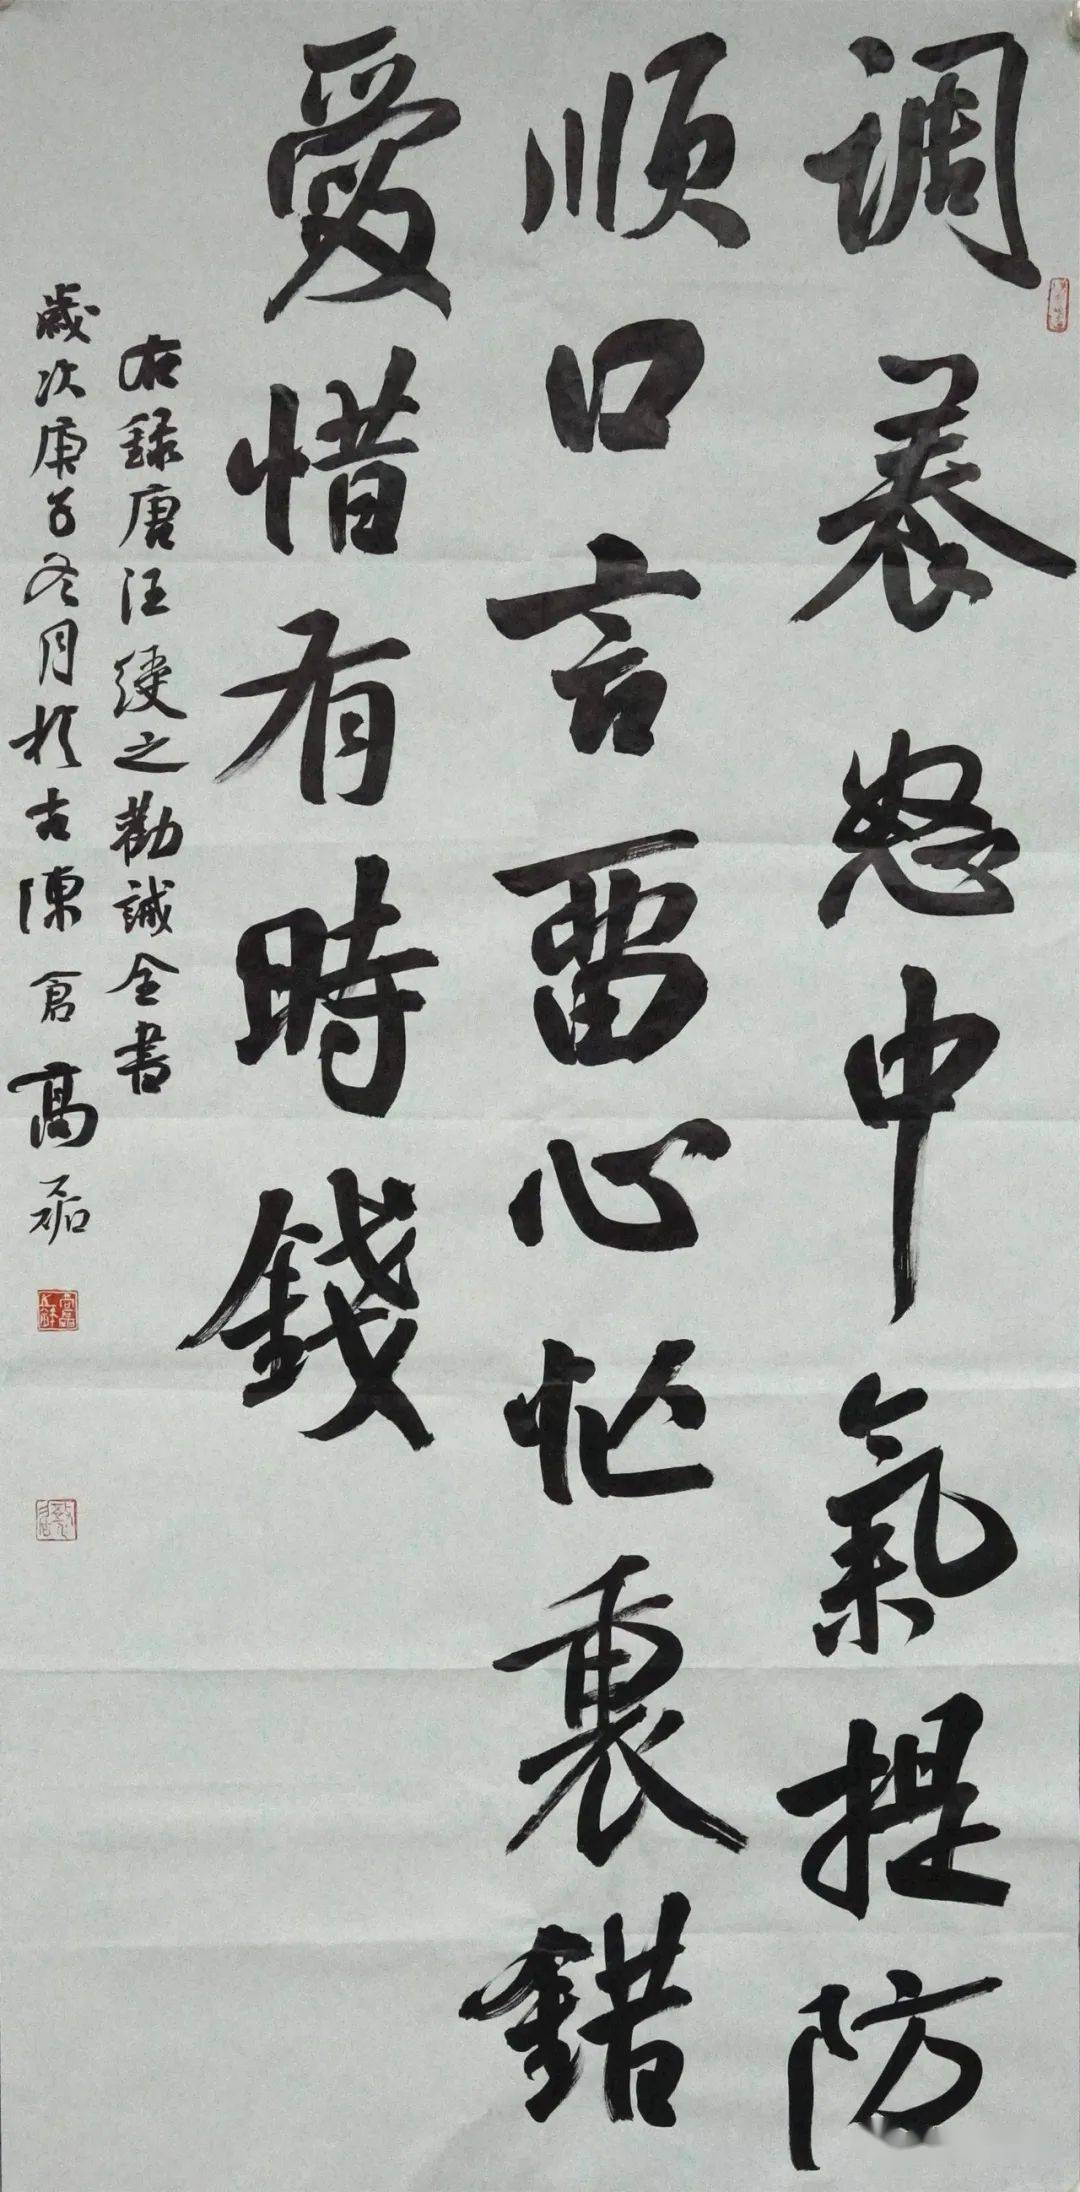 调養怒中氣提防
顺口言畱心忙裏錯
愛惜有時錢
右録唐汪之勸誡全書
歲次庚子冬月於古陳倉高磊